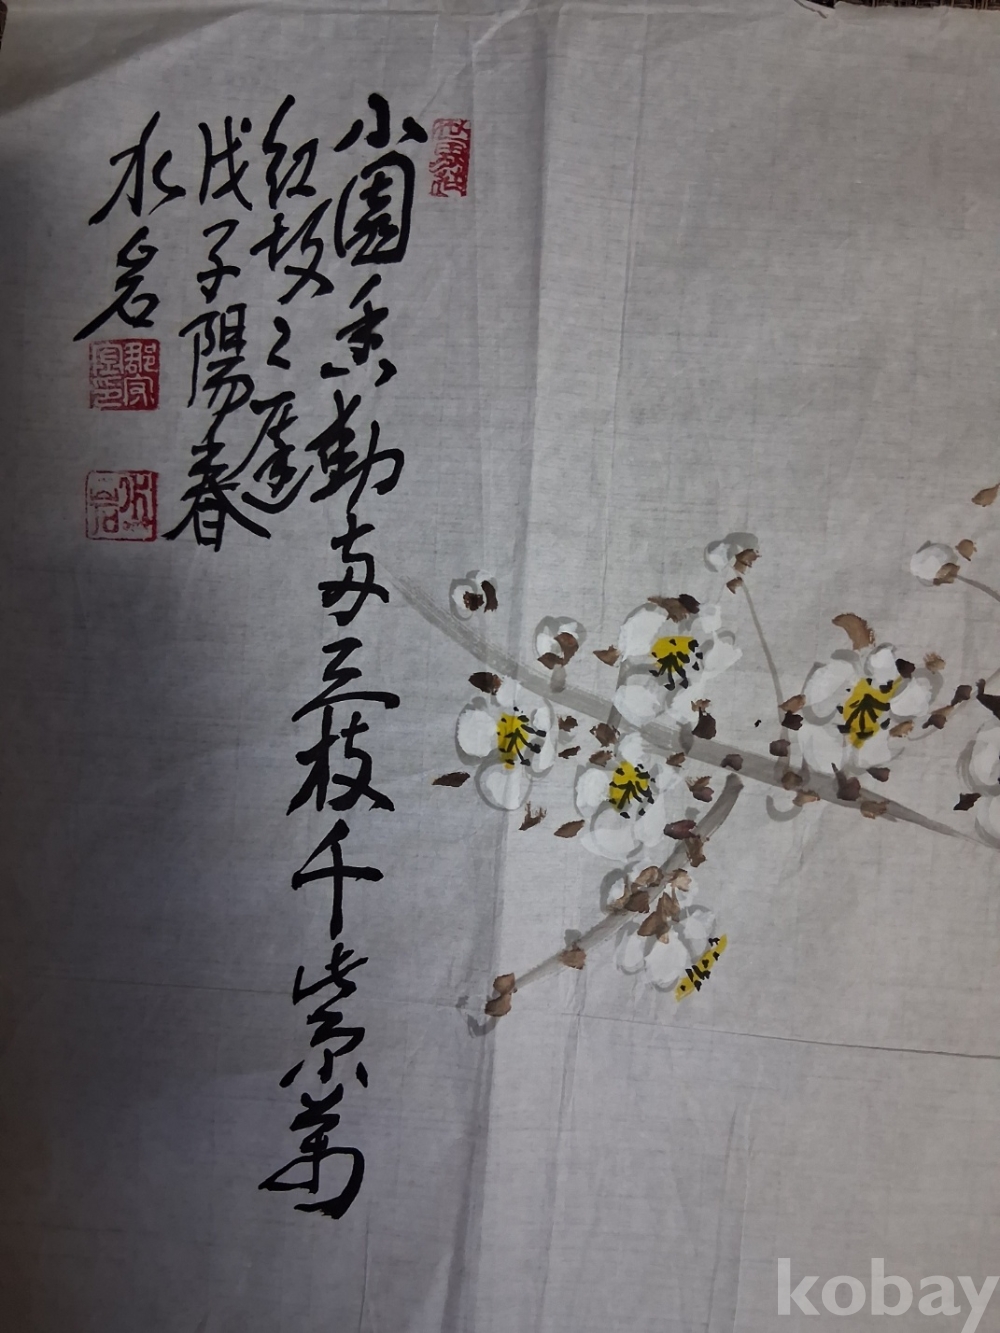 小園香動両三枝千紫萬
紅故〻遲
戊子陽春
水岩
kobay